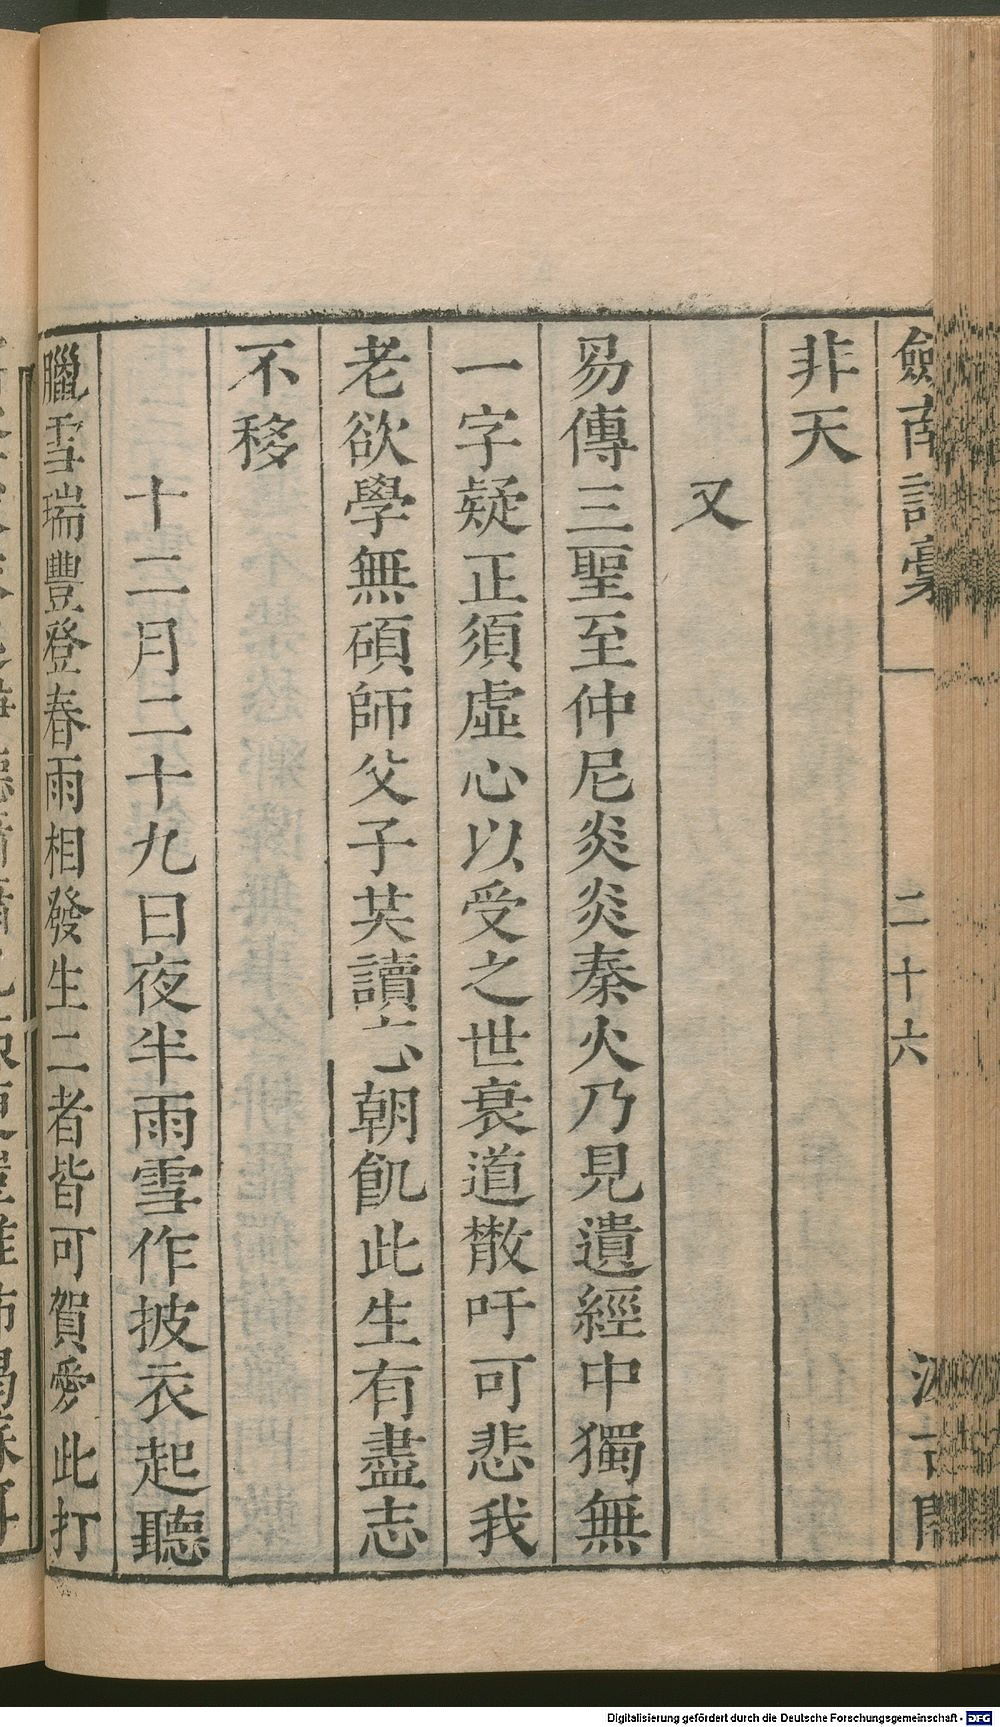 劍南詩稾
二十六
汲古閣
非天
又
易傳三聖至仲尼炎炎秦火乃見遺經中獨無
一字疑正須虛心以受之世衰道散吁可悲我
老欲學無碩師父子共讀忘朝飢此生有盡志
不移
十二月二十九日夜半雨雪作披衣起聽
臘雪瑞豐登春雨相發生二者皆可賀愛此打
Digitalisierung gefördert durch die Deutsche Forschungsgemeinschaft - DFG